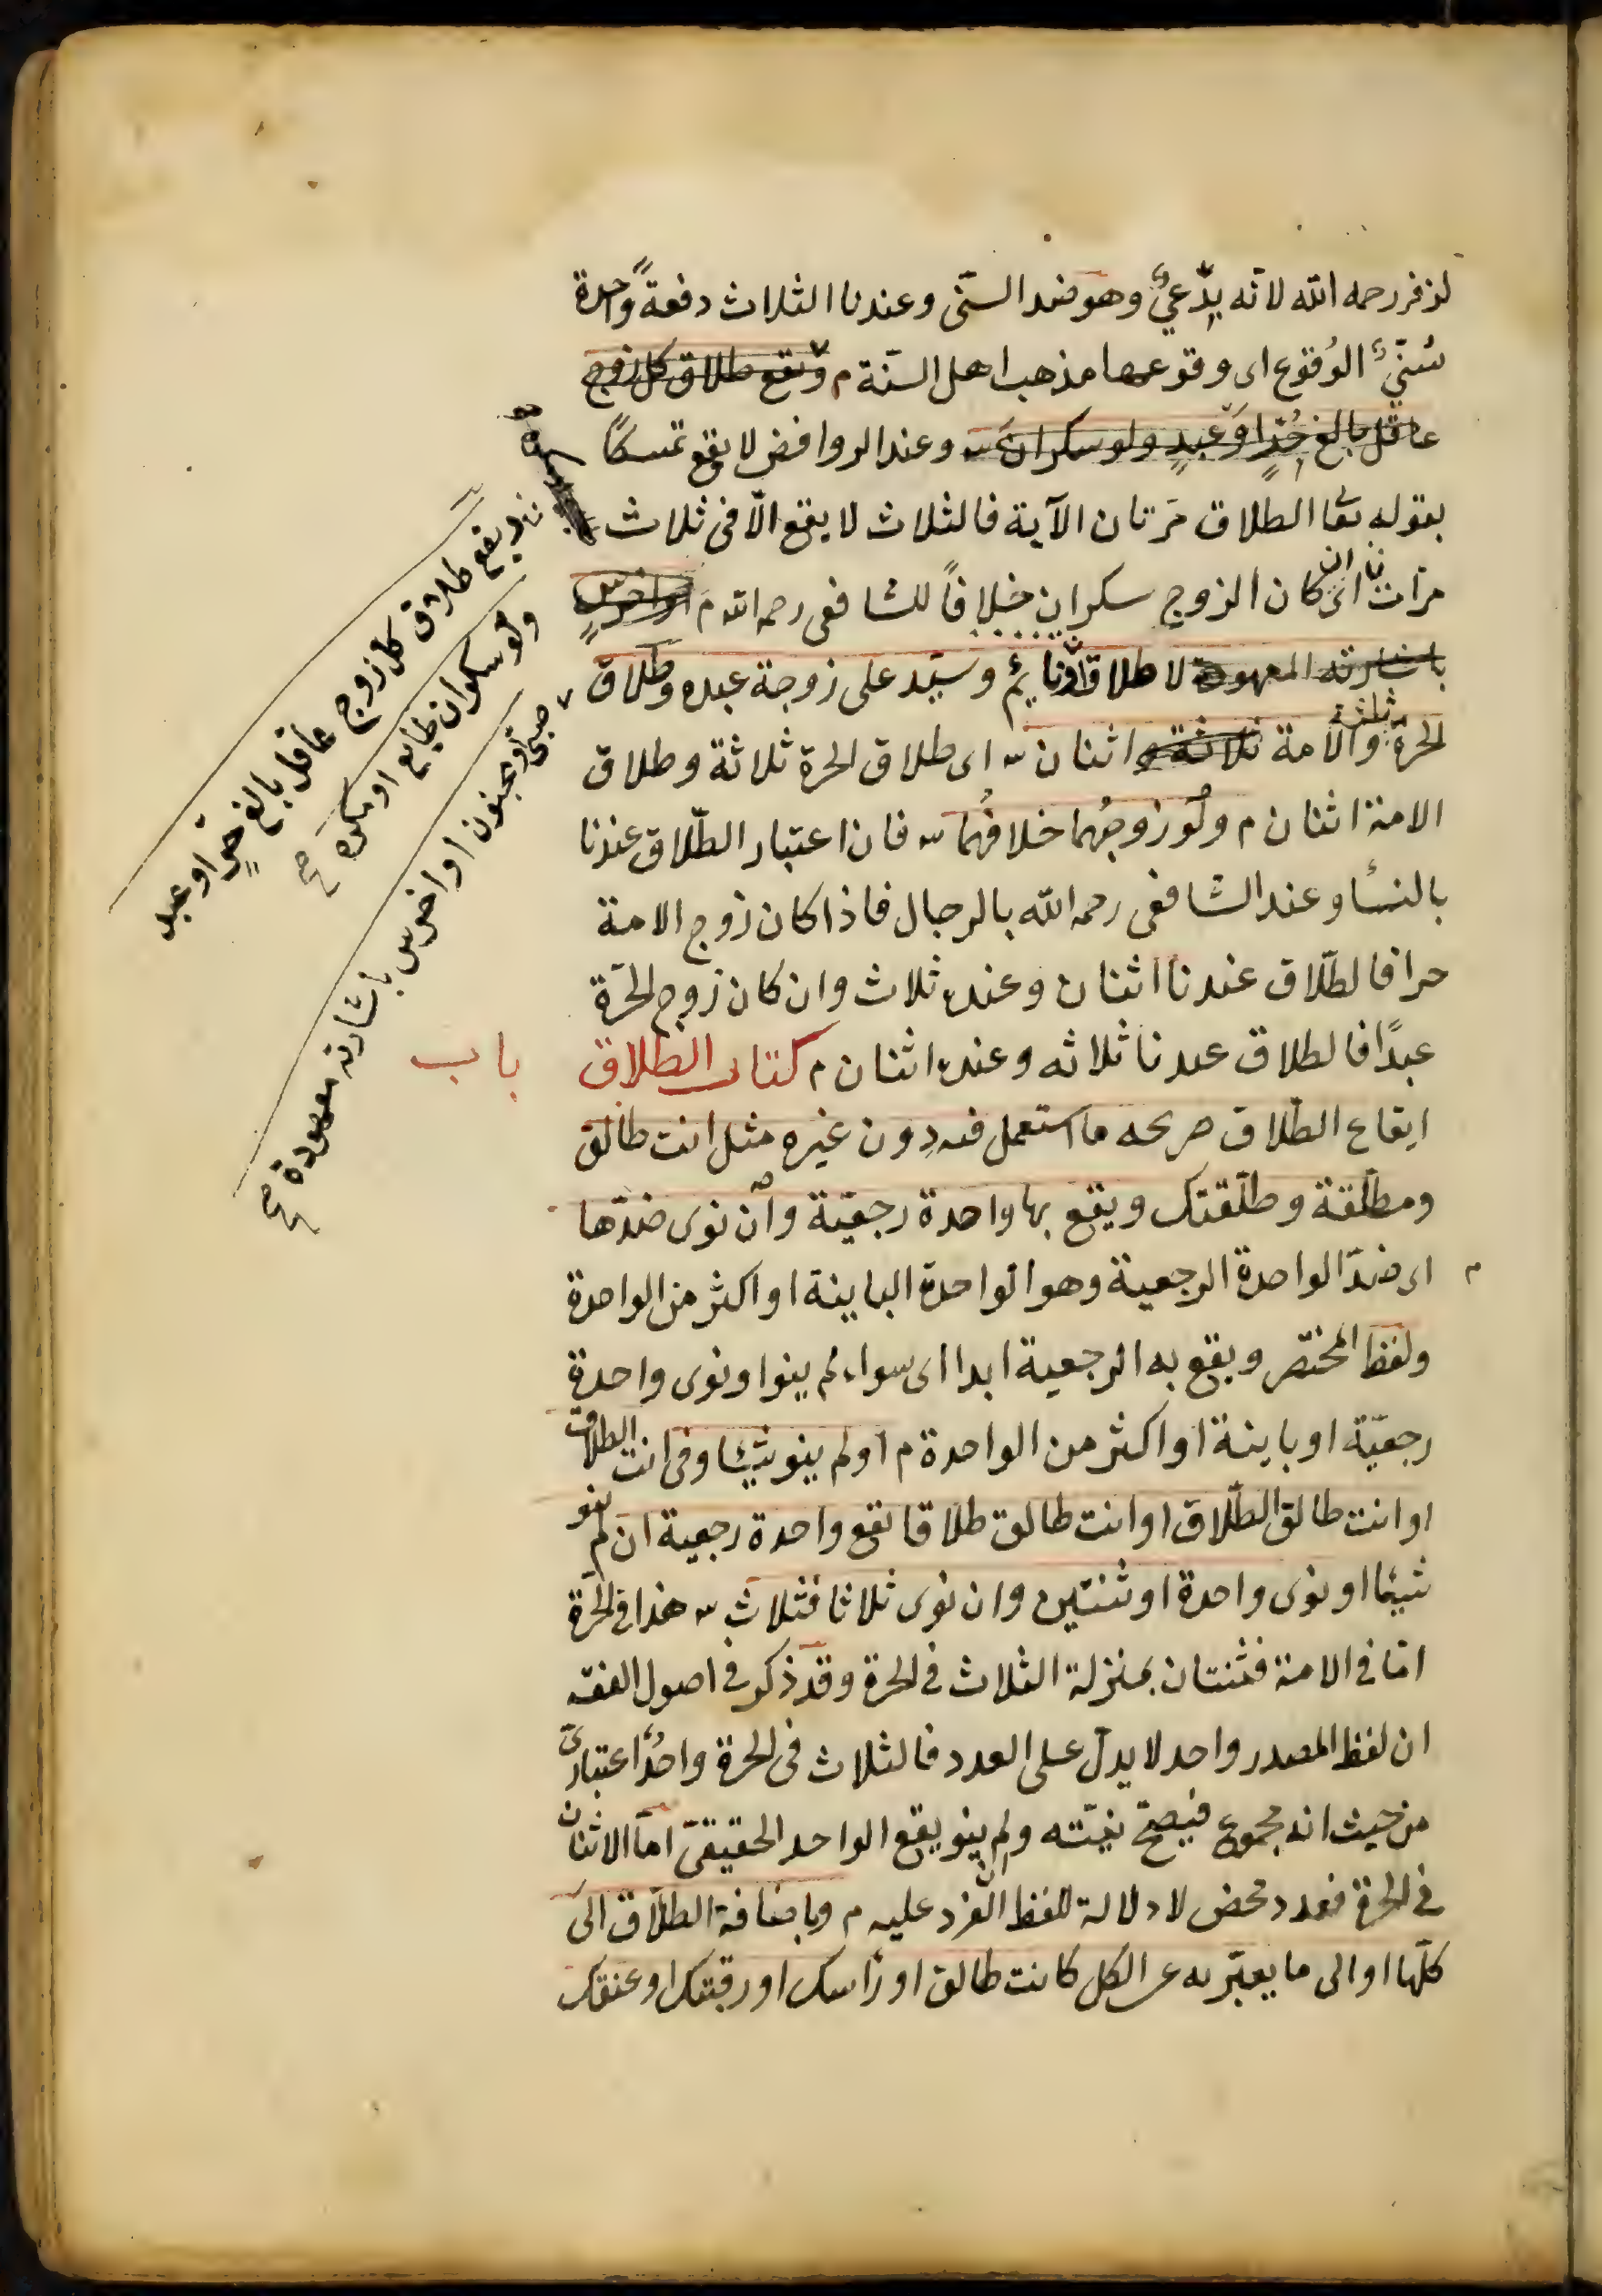 لزفر رحمه الله لانه بِدْعيٌّ وهو ضد السنّى وعندنا الثلاث دفعةً واحدة
سُنيّ الوُقوع اى وقوعها مذهب اهل السنّة م ويقع طلاق كل زوج
عاقل بالغ حُرٍّ او عبدٍ ولو سكران ش وعند الروافض لا يقع تمسكًا
بقوله تعا الطلاق مرّتان الآية فالثلاث لا يقع الّا فى ثلاث
مرات اى ان كان الزوج سكران خلافًا للشافعى رحمه الله م او اخرسٍ
باشارته المعهودة لا طلاق ونايمٌ وسيّد على زوجة عبده وطلاق
الحرة ثلثة والامة ثلاثة و اثنان ش اى طلاق الحرة ثلاثة وطلاق
الامة اثنان م ولَو زوجُهما خلافُهما ش فان اعتبار الطّلاق عندنا
بالنسأ وعند الشافعى رحمه الله بالرجال فاذا كان زوج الامة
حرا فالطلّاق عندنا اثنان وعنده ثلاث وان كان زوج الحرّة
عبدًا فالطلاق عندنا ثلاثه وعنده اثنان م كتاب الطلاق باب
ايقاع الطّلاق صريحه ما استعمل فيه دون غيره مثل انت طالق
ومطلّقة وطلّقتك ويقع بها واحدة رجعيّة وان نوى ضدّها
اى ضدّ الواحدة الرجعية وهو الواحدة الباينة او اكثر من الواحدة
ولفظ المختصر ويقع به الرجعية ابدا اى سواء لم ينو او نوى واحدة
رجعيّة او باينة او اكثر من الواحدة م او لم ينو شيئا وفى انت الطلاق
او انت طالق الطلّاق او انت طالق طلاقا يقع واحدة رجعية ان لم ينو
شيئا او نوى واحدة او ثنتين وان نوى ثلاثا فثلاث ش هذا فى الحرّة
امّا فى الامة فثنتان بمنزلة الثلاث فى الحرة وقد ذكر فى اصول الفقه
ان لفظ المصدر واحد لا يدلّ على العدد فالثلاث فى الحرة واحدٌ اعتبارىّ
من حيث انه مجموع فيصحّ نيّته وان لم ينو يقع الواحد الحقيقىّ امّا الاثنان
فى الحرة فعدد محض لا دلالة للفظ الفرد عليه م وباضافة الطلّاق الى
كلّها او الى ما يعبّر به عن الكل كانت طالق او رأسك او رقبتك او عنقك
ويقع طلاق كل زوج عاقل بالغ حرٍّ او عبد
ولو سكران طايع او مكره صح
صبى او مجنون او اخرس باشارته معهودة صح